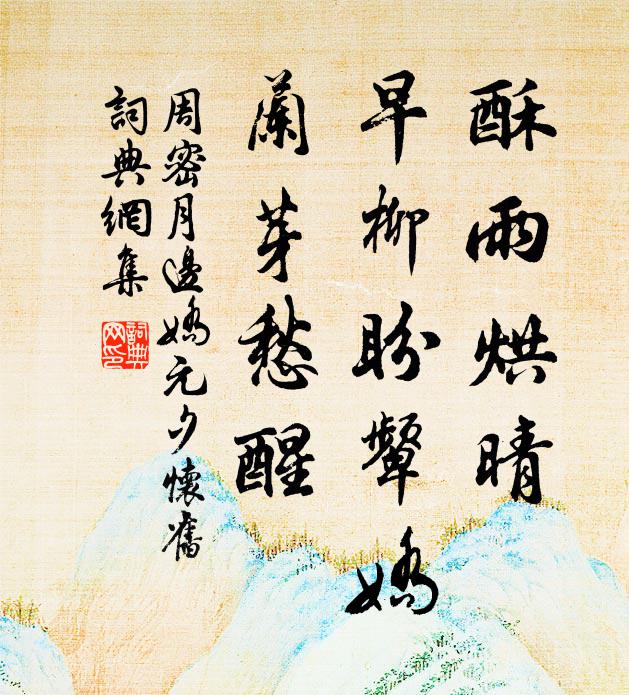 酥雨烘晴
早柳盼顰嬌
蘭芽愁醒
周密月邊嬌元夕懷舊
詞典網集
詞典
网印